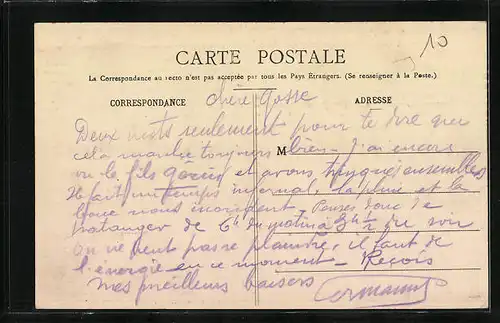 10
CARTE POSTALE
La Correspondance au recto n'est pas acceptée par tous les Pays Étrangers. (Se renseigner à la Poste.)
CORRESPONDANCE
ADRESSE
chère Gosse
Deux mots seulement pour te dire que
cela marche toujours bien - J'ai encore
M
vu le fils et avons trinqué ensembles
Il fait un temps infernal, la pluie et la
boue nous inondent Pensez donc de
patauger de 6h du matin à 3h 1/2 du soir
on ne peut pas se plaindre, il faut de
l'énergie en ce moment - Reçois
mes meilleurs baisers